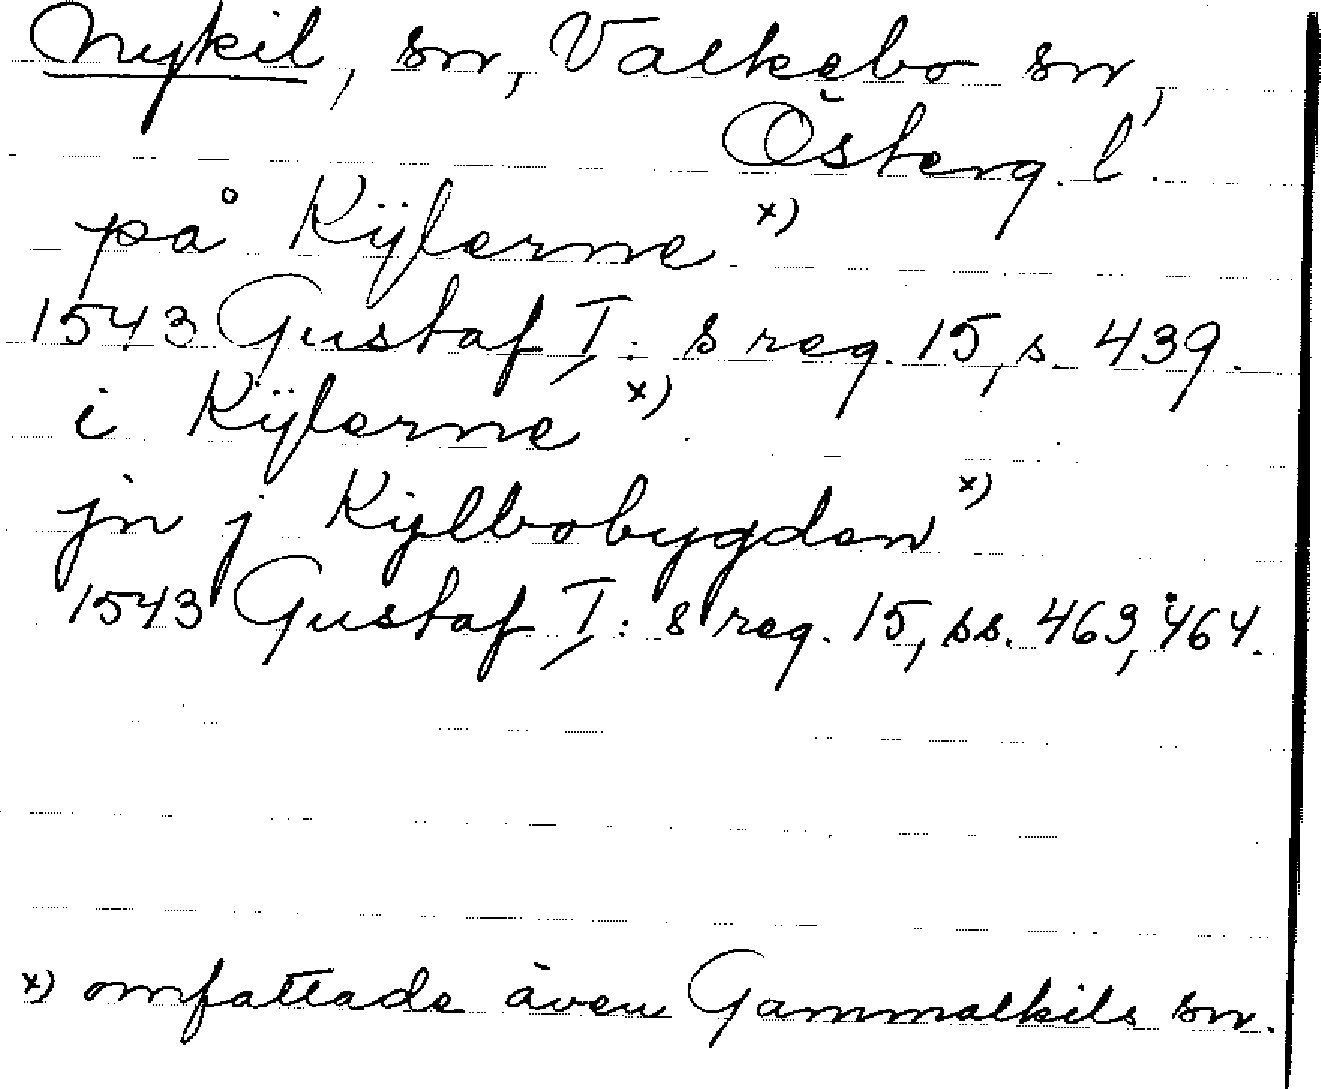 Nykil, sn, Valkebo sn,
Österg. l.
på Kÿlerne x)
1543 Gustaf I: s reg. 15, s. 439.
i Kÿlerne x)
jn j Kÿlbobygden x)
1543 Gustaf I: s reg. 15, ss. 463, 464.
x) omfattade även Gammalkils sn.